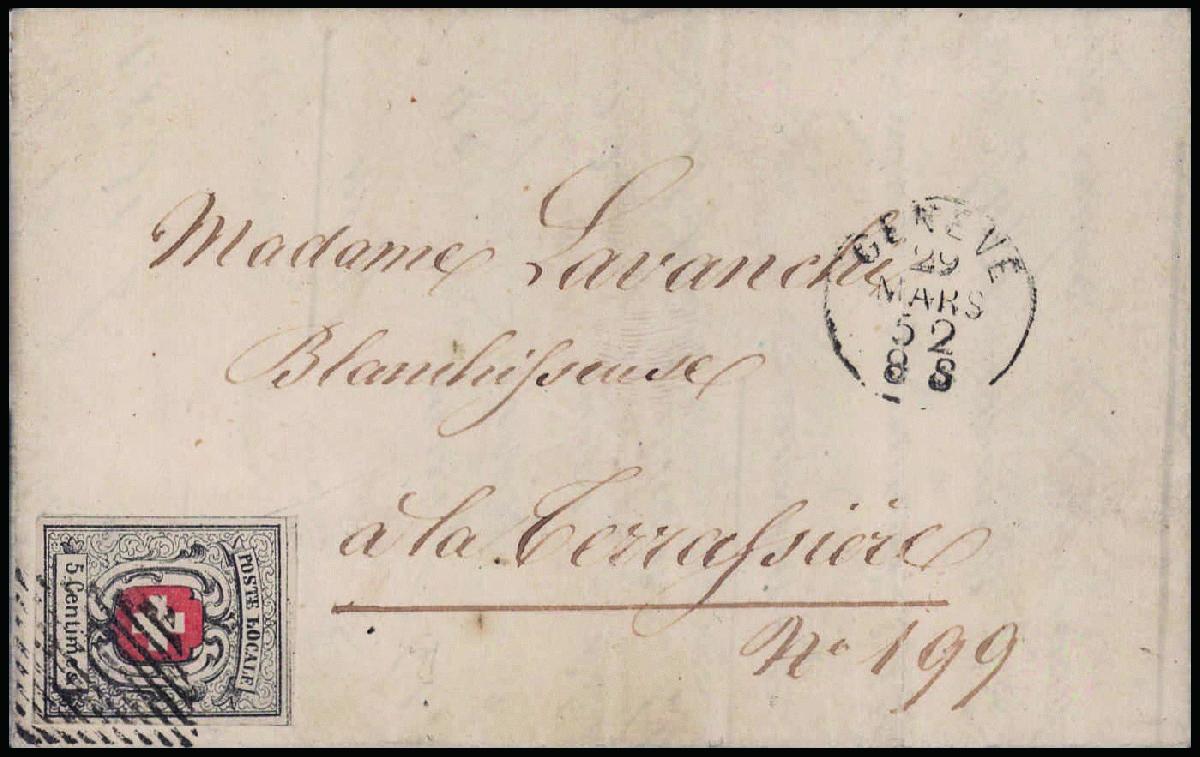 Madame Lavanchi
Blanchiſseuse
à la Terraſsière
No 199
GENEVE
29
MARS
52
8 8
POSTE LOCALE
5 Centimes